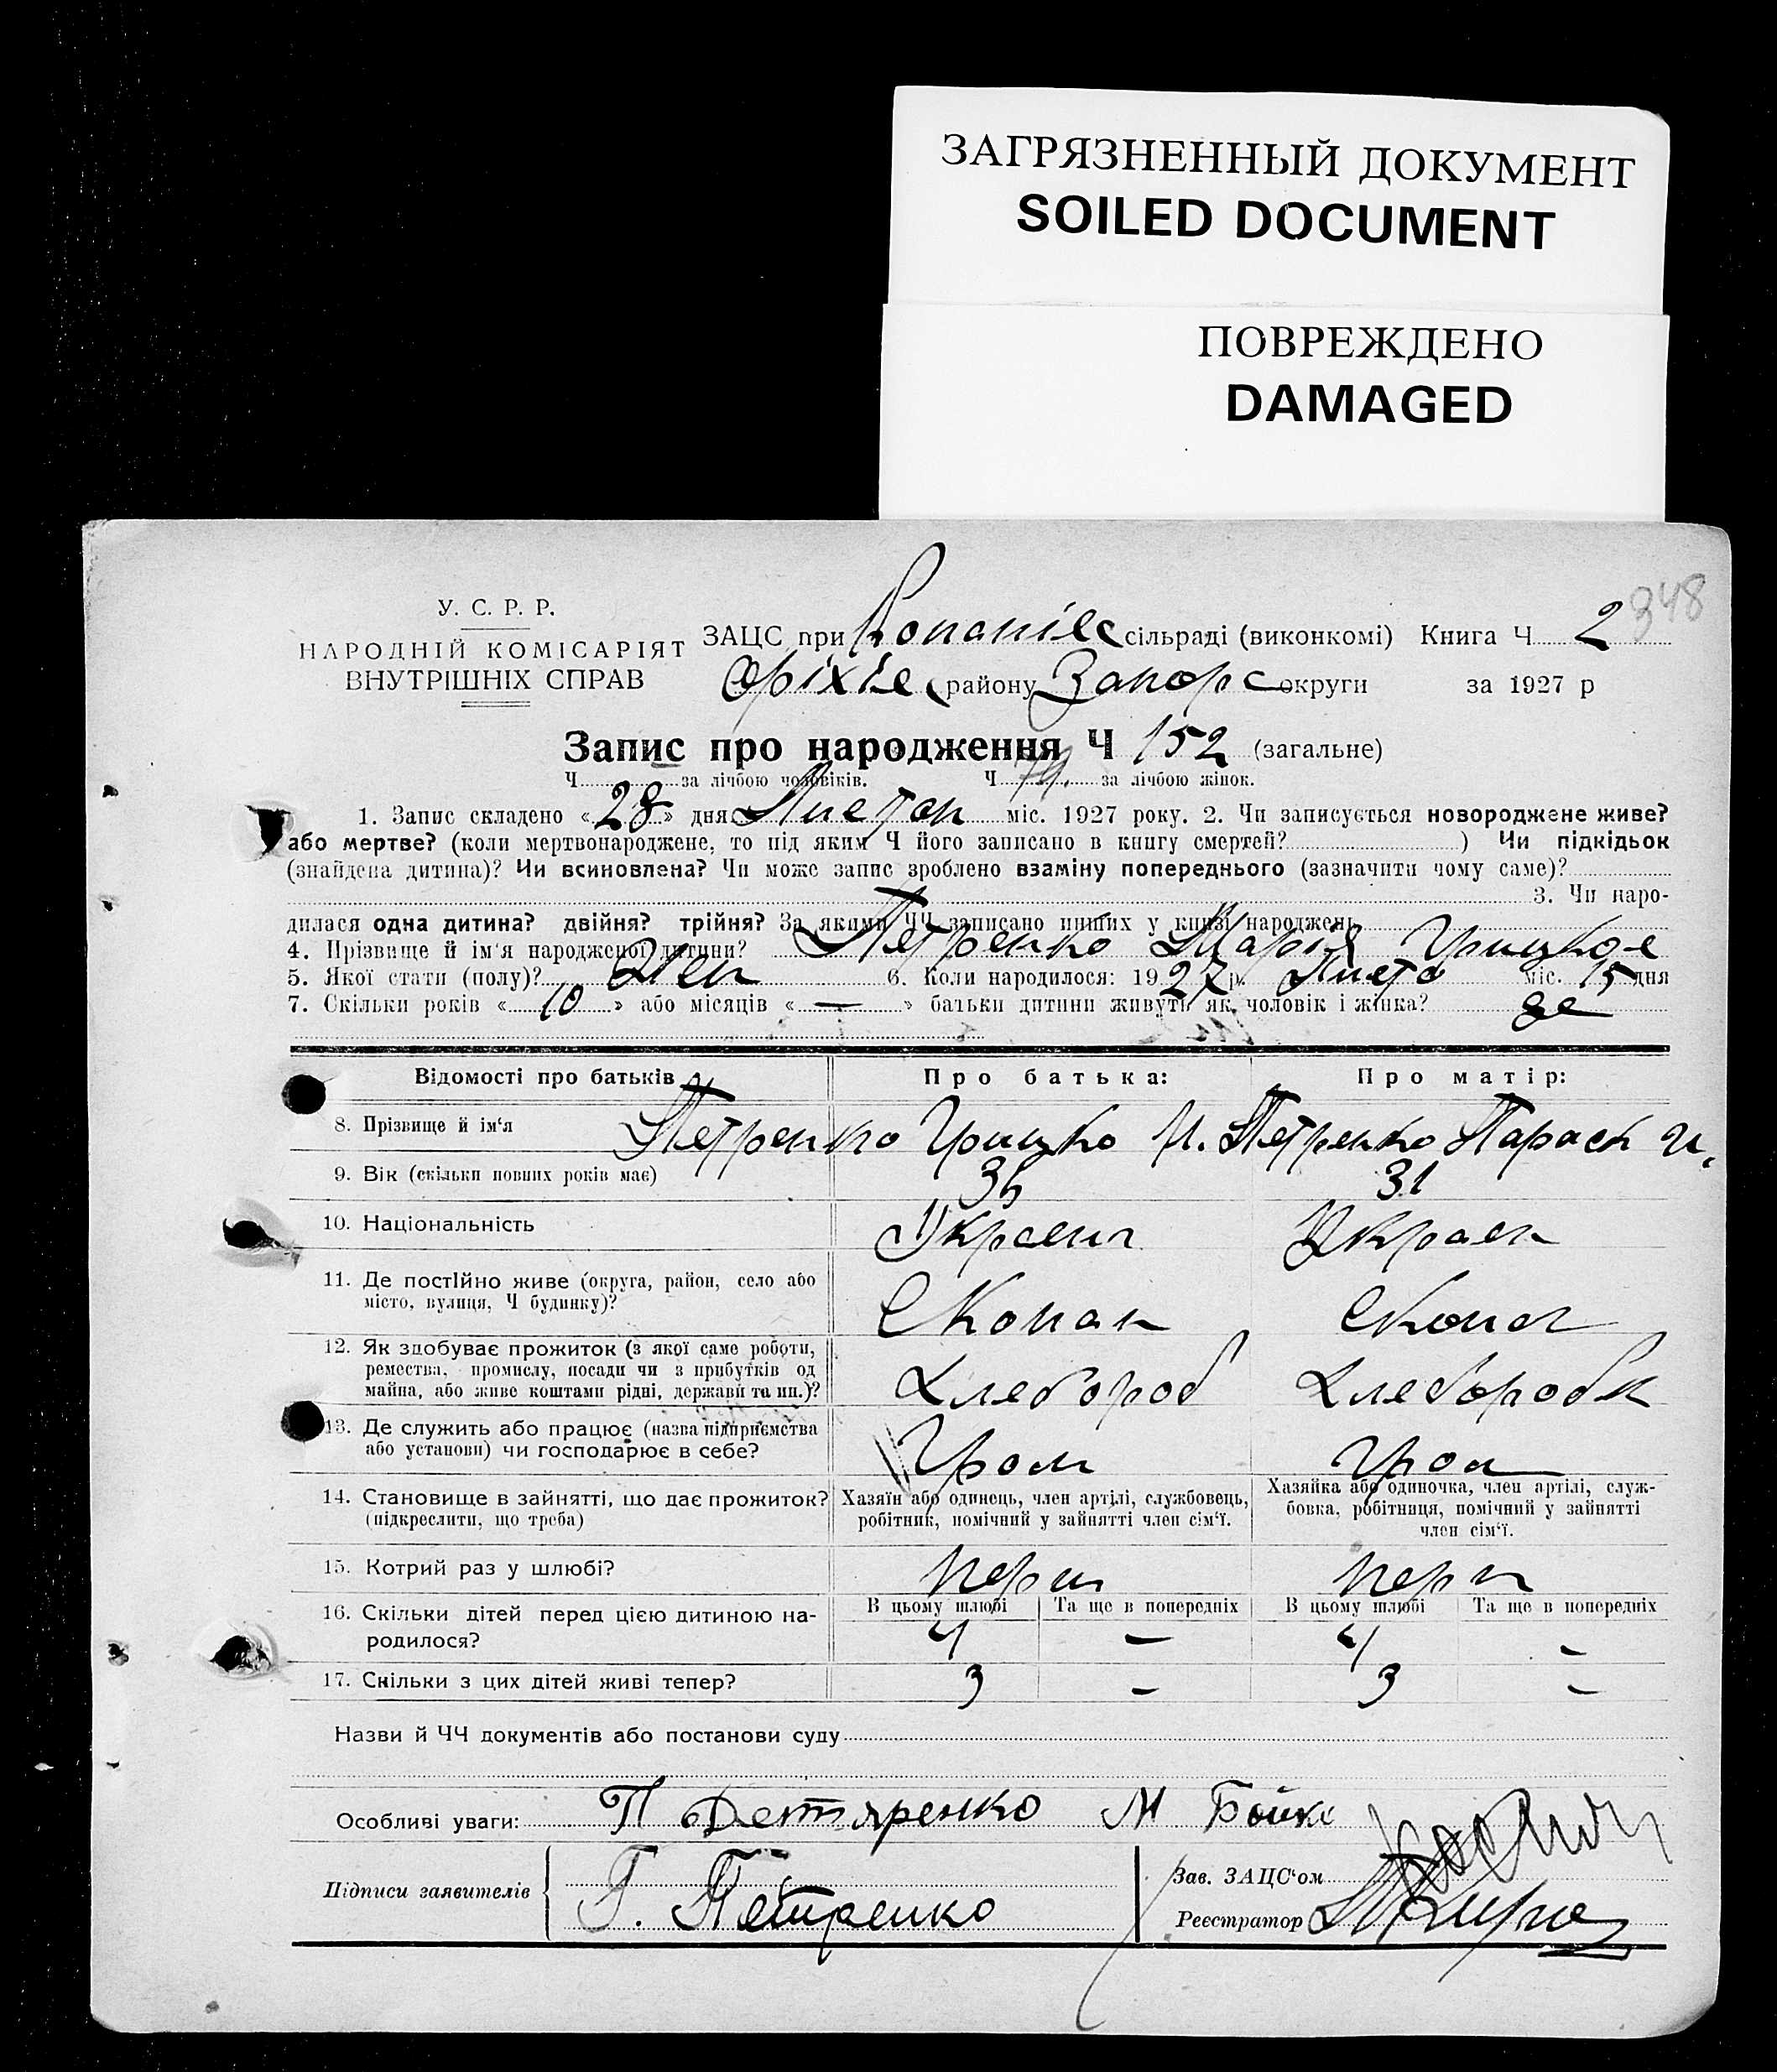 ЗАГРЯЗНЕННЫЙ ДОКУМЕНТ
SOILED DOCUMENT
ПОВРЕЖДЕНО
DAMAGED
348
У. С. Р. Р.
НАРОДНІЙ КОМІСАРІЯТ
ВНУТРІШНІХ СПРАВ
ЗАЦС при Копанівс сільраді (виконкомі) Книга Ч 2
Оріхів району Запорс округи за 1927 р
Запис про народження Ч 152 (загальне)
Ч за лічбою чоловіків. Ч 79 за лічбою жінок.
1. Запис складено «28» дня Листоп міс. 1927 року. 2. Чи записується новороджене живе?
або мертве? (коли мертвонароджене, то під яким Ч його записано в книгу смертей? ) Чи підкідьок
(знайдена дитина)? Чи всиновлена? Чи може запис зроблено взаміну попереднього (зазначити чому саме)?
3. Чи наро-
дилася одна дитина? двійня? трійня? За якими ЧЧ записано инших у книзі народжень
4. Прізвище й ім'я народженої дитини? Петренко Марія Грицков
5. Якої стати (полу)? Жен 6. Коли народилося: 1927 р. Листо міс. 15 дня
7. Скільки років «10» або місяців «—» батьки дитини живуть як чоловік і жінка? да
Відомості про батьків Про батька: Про матір:
8. Прізвище й ім'я Петренко Грицко И. Петренко Параск И.
9. Вік (скільки повних років має) 36 31
10. Національність Украенч Украен
11. Де постійно живе (округа, район, село або
місто, вулиця, Ч будинку)? С Копан С Копан
12. Як здобуває прожиток (з якої саме роботи,
ремества, промислу, посади чи з прибутків од
майна, або живе коштами рідні, держави та ин.)? Хлебороб Хлеборобк
13. Де служить або працює (назва підприємства
або установи) чи господарює в себе?
14. Становище в зайнятті, що дає прожиток?
(підкреслити, що треба)
Хазяїн або одинець, член артілі, службовець,
робітник, помічний у зайнятті член сім'ї.
Хазяйка або одиночка, член артілі, служ-
бовка, робітниця, помічний у зайнятті
член сім'ї.
15. Котрий раз у шлюбі? перш перш
В цьому шлюбі Та ще в попередніх В цьому шлюбі Та ще в попередніх
16. Скільки дітей перед цією дитиною на-
родилося? 4 — 4 —
17. Скільки з цих дітей живі тепер? 3 — 3 —
Назви й ЧЧ документів або постанови суду
Особливі уваги: П Дехтяренко М Бойко
Підписи заявителів Г. Петренко
Зав. ЗАЦС'ом
Реєстратор